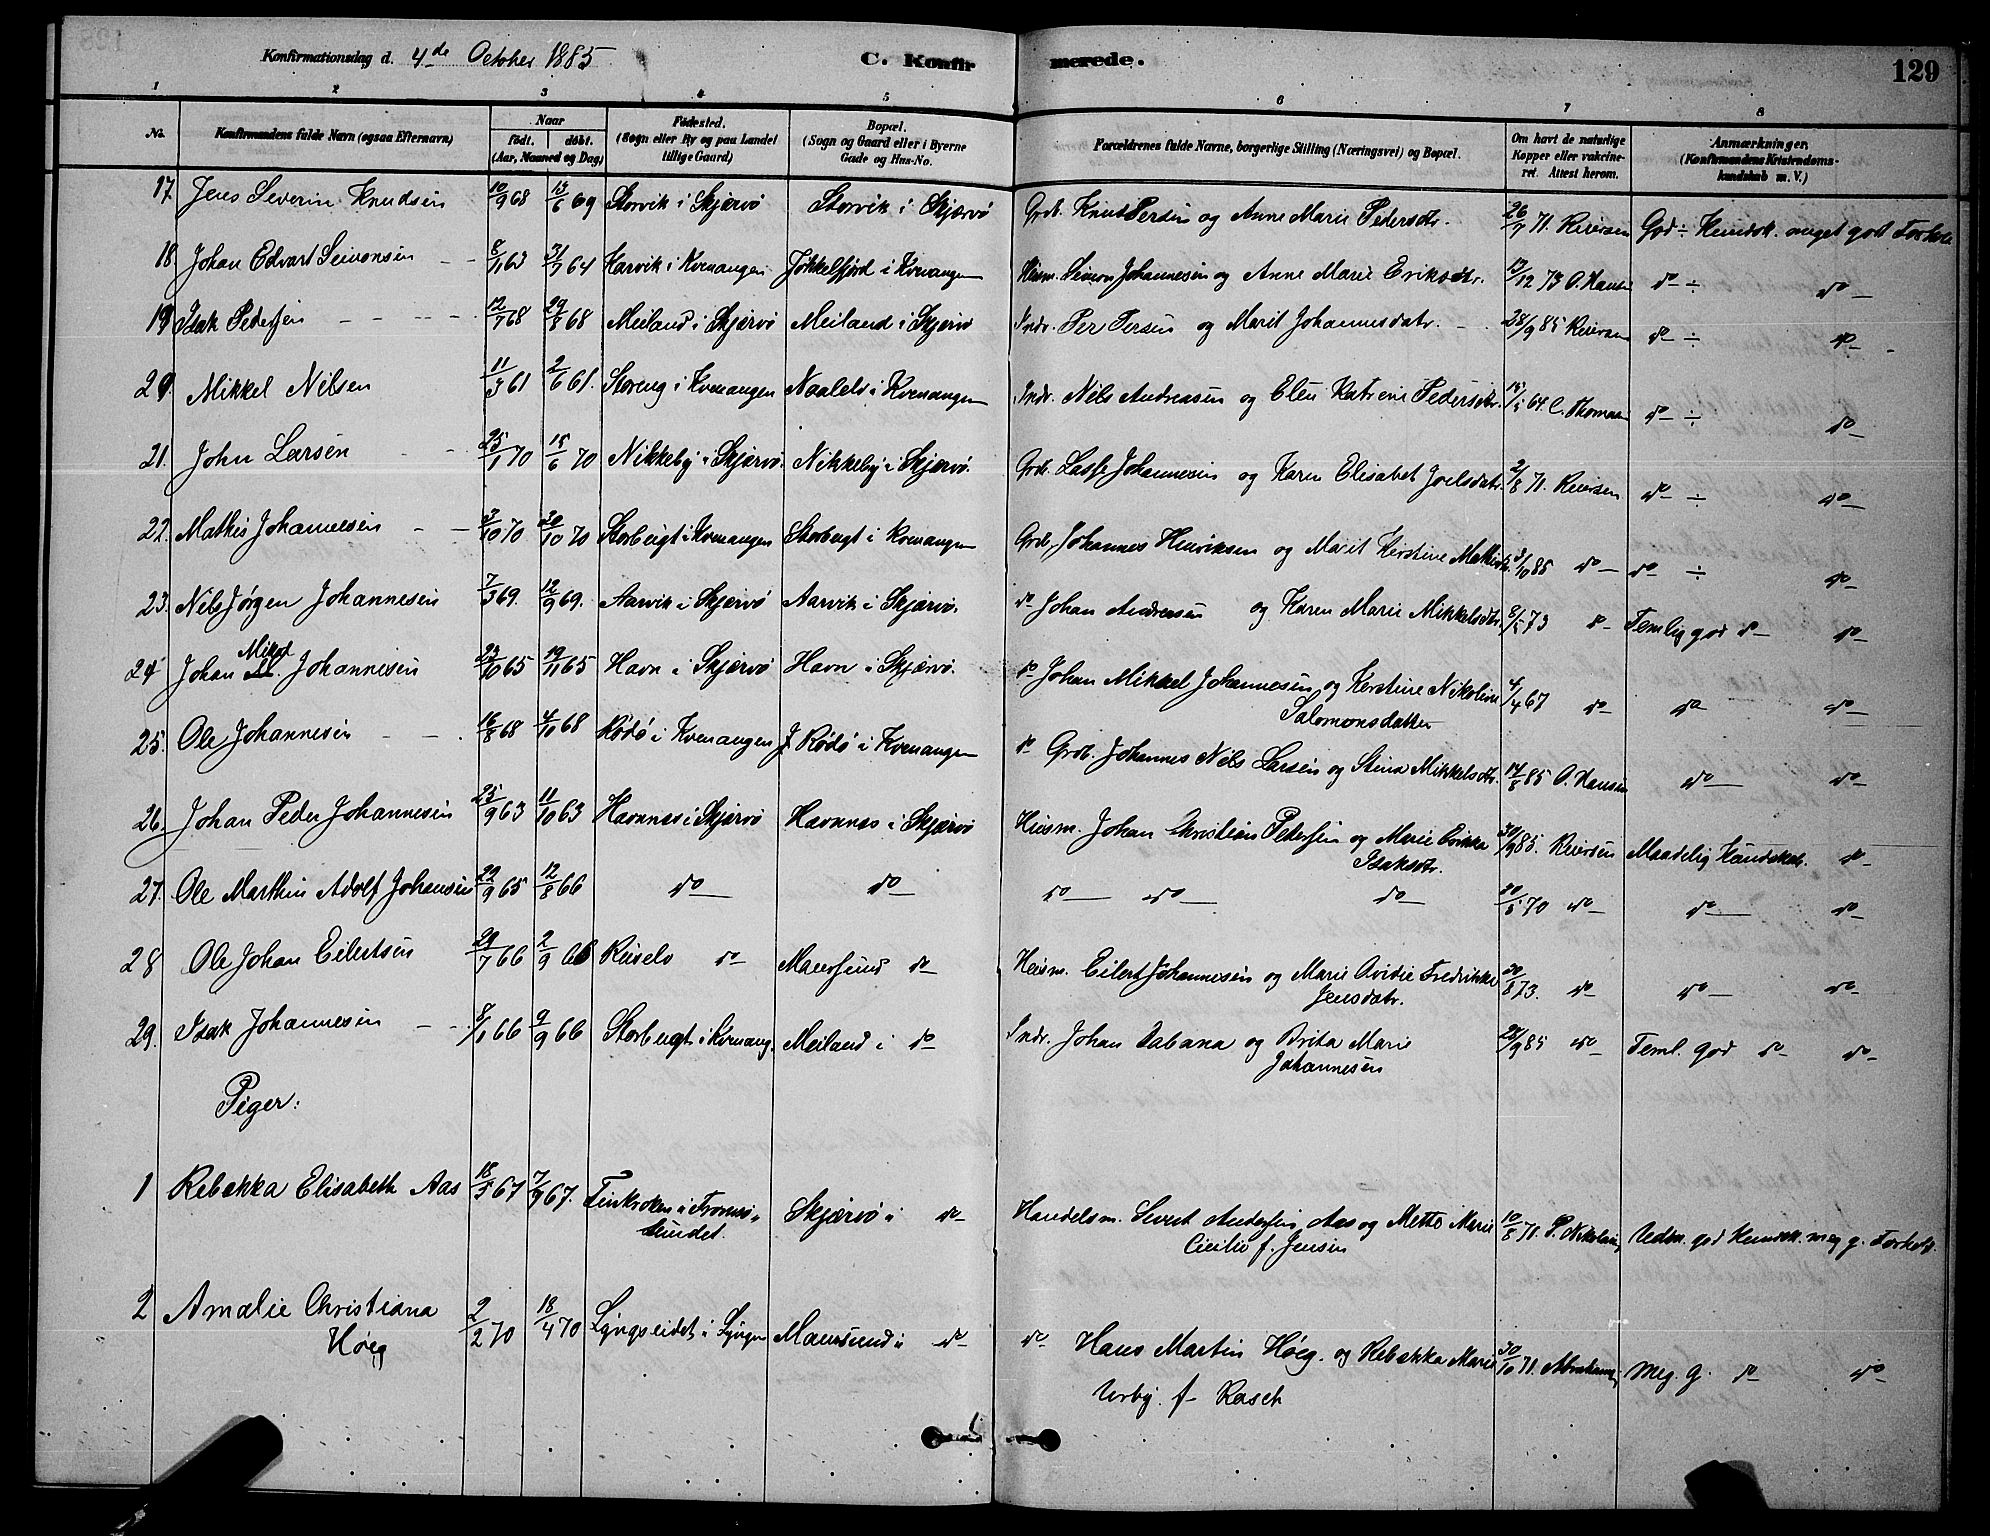 Konfirmationsdag d. 4de October 1885 C. Konfirmerede. 129
1 2 3 4 5 6 7 8
No. Konfirmandens fulde Navn (ogsaa Efternavn) Naar født. døbt. (Aar, Maaned og Dag) Fødested. (Sogn eller By og paa Landet tillige Gaard) Bopæl. (Sogn og Gaard eller i Byerne Gade og Hus-No. Forældrenes fulde Navne, borgerlige Stilling (Næringsvei) og Bopæl. Om havt de naturlige Kopper eller vakcineret. Attest herom. Anmærkninger. (Konfirmandens Kristendomskundskab m. V.)
17. Jens Severin Knudsen 10/9 68 13/6 69 Storvik i Skjærvö Storvik i Skjærvö Grdb. Knud Persen og Anne Marie Pedersdtr. 26/7 71. Reiersen God ÷ Kundsk. meget godt Forhold
18. Johan Edvart Seimonsen 8/11 63 31/7 64 Karvik i Kvenangen Jökkelfjord i Kvenangen Huusm. Seimon Johannesen og Anne Marie Eriksdtr. 13/12 73 O. Hansen do ÷ do
19 Isak Pedersen 12/7 68 29/8 68 Meiland i Skjærvö Meiland i Skjærvö Indr. Per Persen og Marit Johannesdatr. 28/9 85 Reiersen do ÷ do
20. Mikkel Nilsen 11/3 61 2/6 61. Storeng i Kvenangen Naalels i Kvenangen Indr. Nils Andreasen og Elen Katrine Pedersdtr. 64. C. Thomas do ÷ do
21. John Larsen 25/1 70 15/6 70 Nikkeby i Skjærvö Nikkeby i Skjærvö. Grdb. Lasse Johannesen og Karen Elisabet Joelsdatr. 2/8 71. Reiersen do ÷ do
22. Mathis Johannesen 3/10 70 30/10 70 Storbergt i Kvenangen Storbergt i Kvenangen Grdb. Johannes Henriksen og Marit Kerstine Mathisdtr. 3/10 85 do do ÷ do
23. Nils Jørgen Johannesen 7/3 69. 12/9 69. Aarvik i Skjærvö Aarvik i Skjærvö. do Johan Andreasen og Karen Marie Mikkelsdtr. 8/5 73 do Temlig god do do
24 Johan Mikel Johannesen 23/10 65 19/11 65 Havn i Skjærvö Havn i Skjærvö. do Johan Mikkel Johannesen og Kerstine Nikoline Salomonsdatter 4/4 67 do do do
25. Ole Johannesen 16/8 68 4/10 68 Rödö i Kvenangen Rödö i Kvenangen do Grdb. Johannes Nils Larsen og Stina Mikkelsdtr. 14/8 85 O. Hansen do do
26. Johan Peder Johannesen 25/9 63 11/10 63 Havnnes i Skjærvö Havnnes i Skjærvö Huusm. Johan Christian Petersen og Marie Isaksdtr. 30/9 85. Reiersen Maadelig Kundskab. do
27. Ole Marthin Adolf Johansen 22/9 65 12/8 66 do do do do do 20/5 70 do do do
28 Ole Johan Eilertsen 29/7 66 2/9 66 Reiselv do Maursund do Huusm. Eilert Johannesen og Marie Ovidie Fredrikke Jensdatr. 20/8 73. do do do
29. Isak Johannesen 8/1 66 9/9 66 Storbergt i Kvenang. Meiland i do Indr. Johan Dabana og Brita Marie Johannesen 28/9 85 do Teml. god do do
Piger:
1 Rebekka Elisabeth Aas 18/5 67 7/9 67. Finkroken i Tromsösundet. Skjærvö i do Handelsm. Sivert Andersen Aas og Mette Marie Cicilie f. Jensen 10/8 71. P. Nikolaisen Udm. god Kundsk. meg g. Forhold.
2 Amalie Christiana Höeg 2/2 70 18/4 70 Lyngseidet i Lyngen Maursund i do do Hans Martin Höeg. og Rebekka Marie Urby. f. Rasch 30/10 71. Abrahams. Meg. g. do do